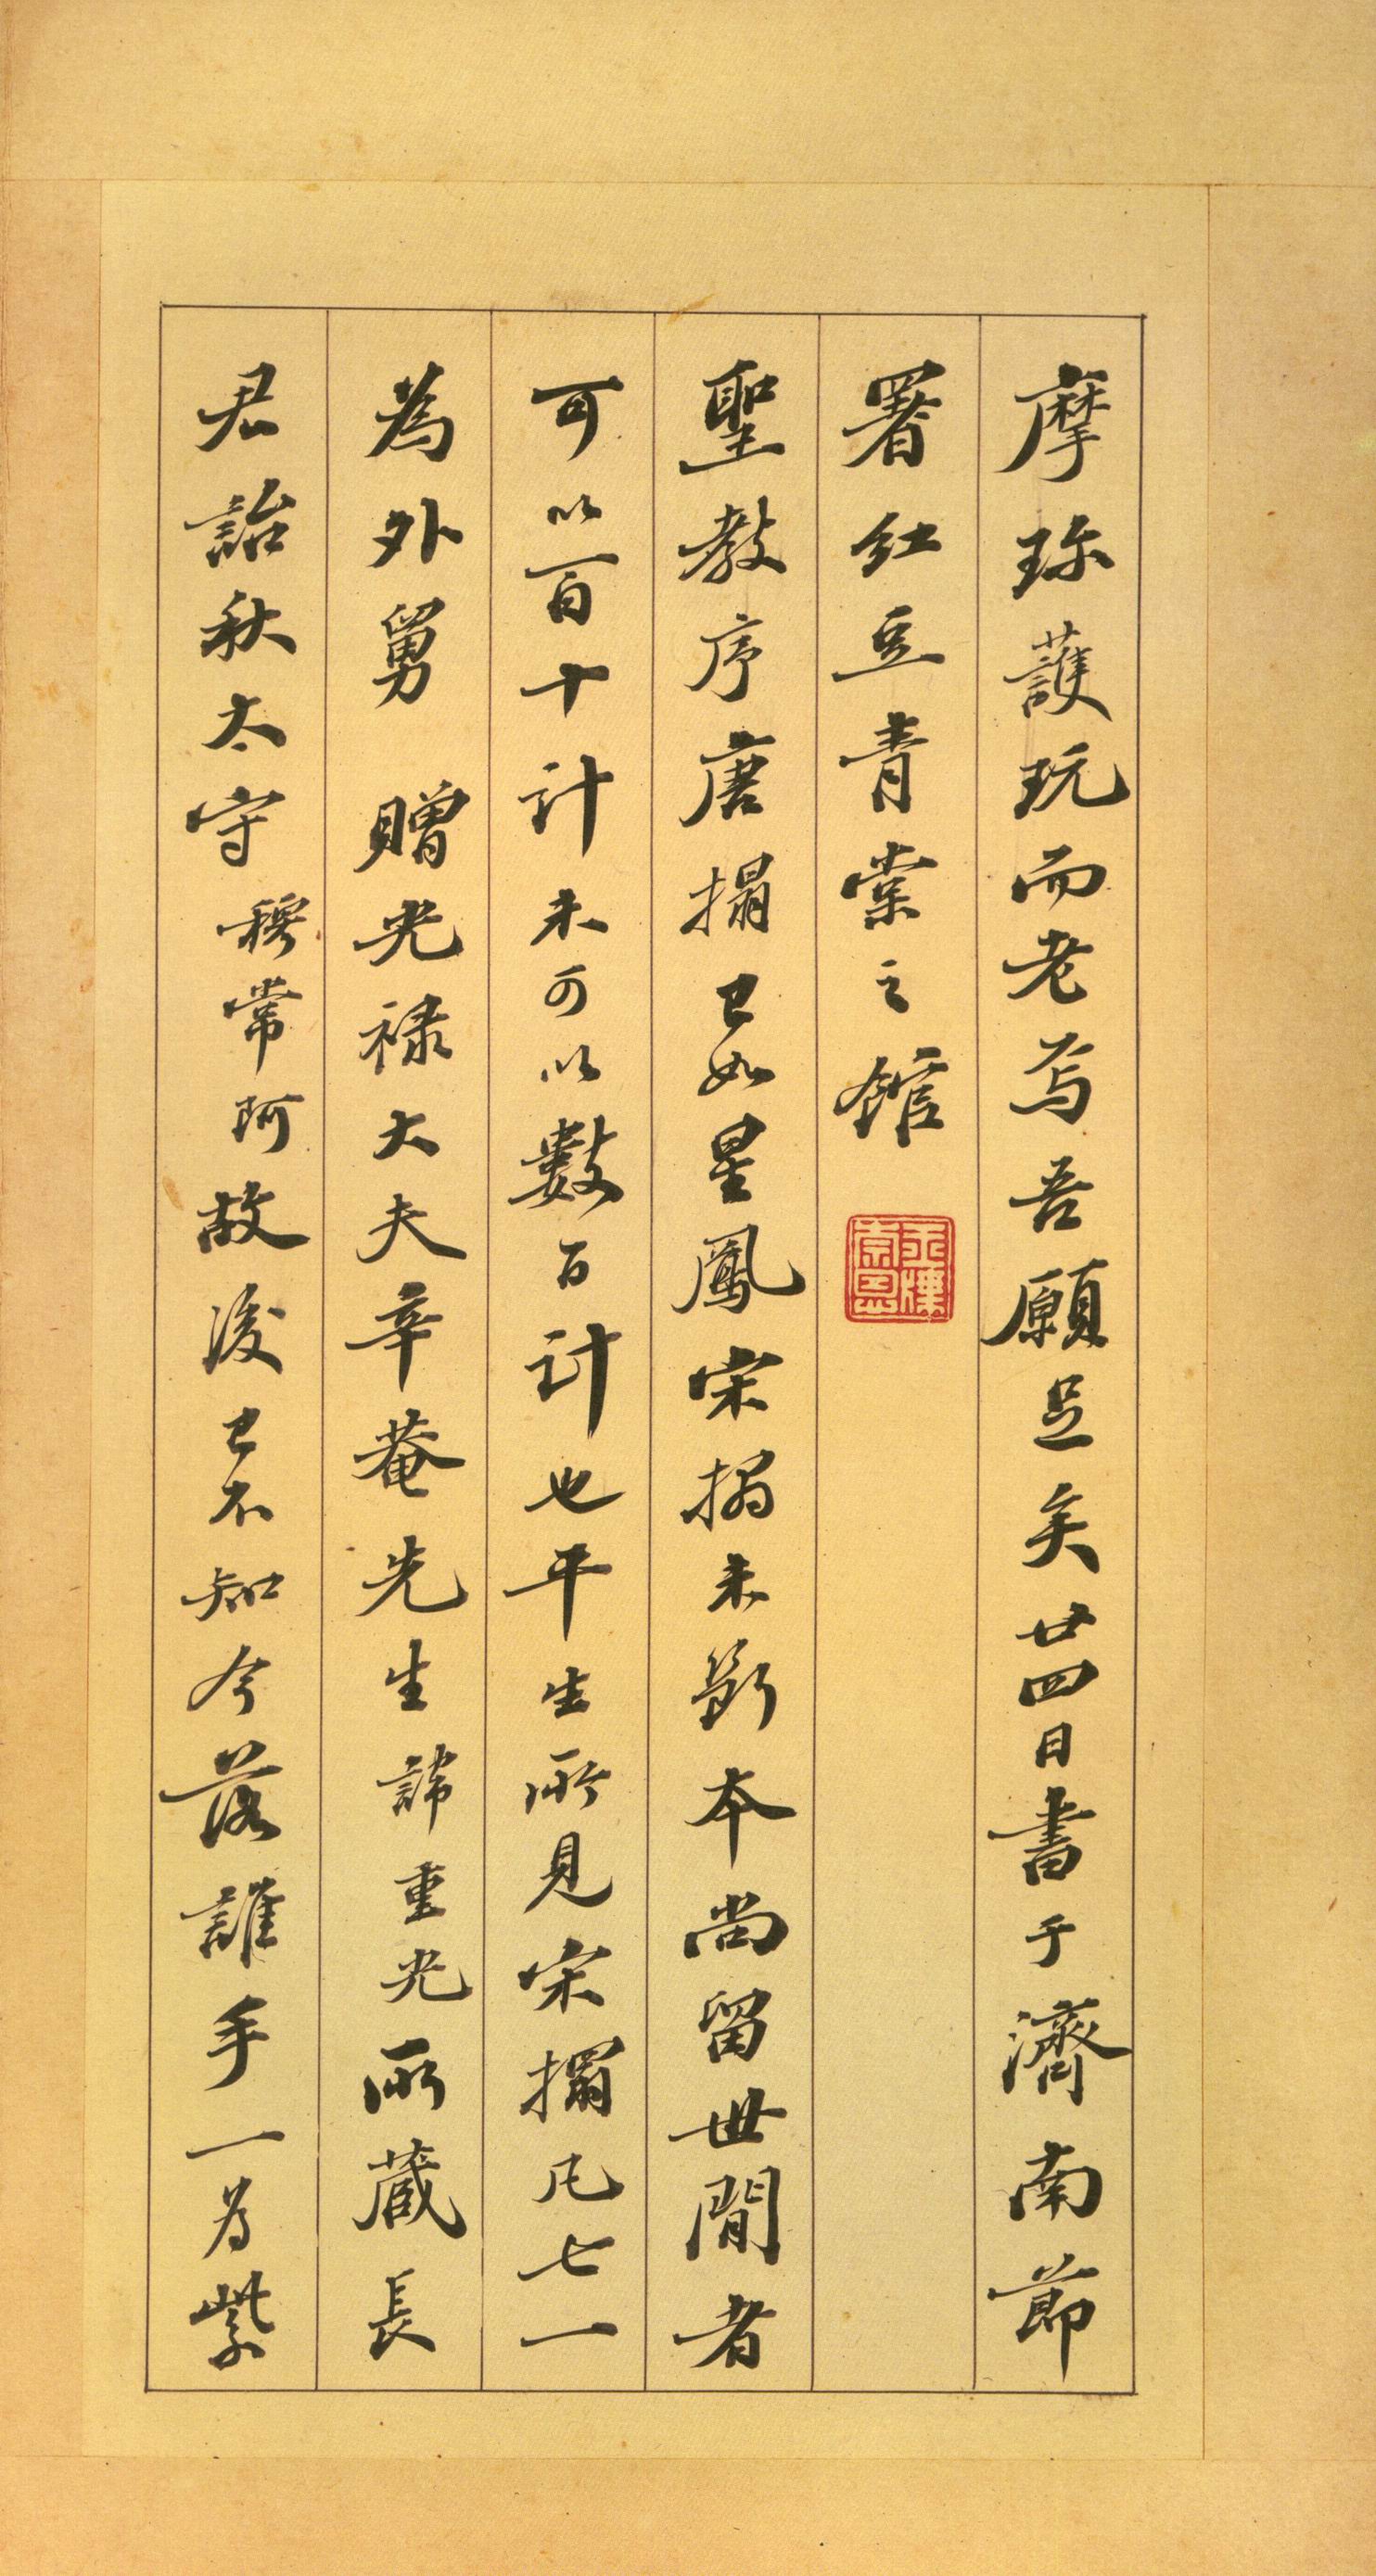 摩珎護玩而老焉吾願足矣廿四日書于濟南節
署紅豆青棠之館
聖教序唐搨已如星鳳宋搨未斷本尚留世間者
可以百十計未可以數百計也平生所見宋搨凡七一
為外舅 贈光祿大夫辛菴先生諱重光所蔵長
君詒秋太守穆常阿故後已不知今落誰手一为紫